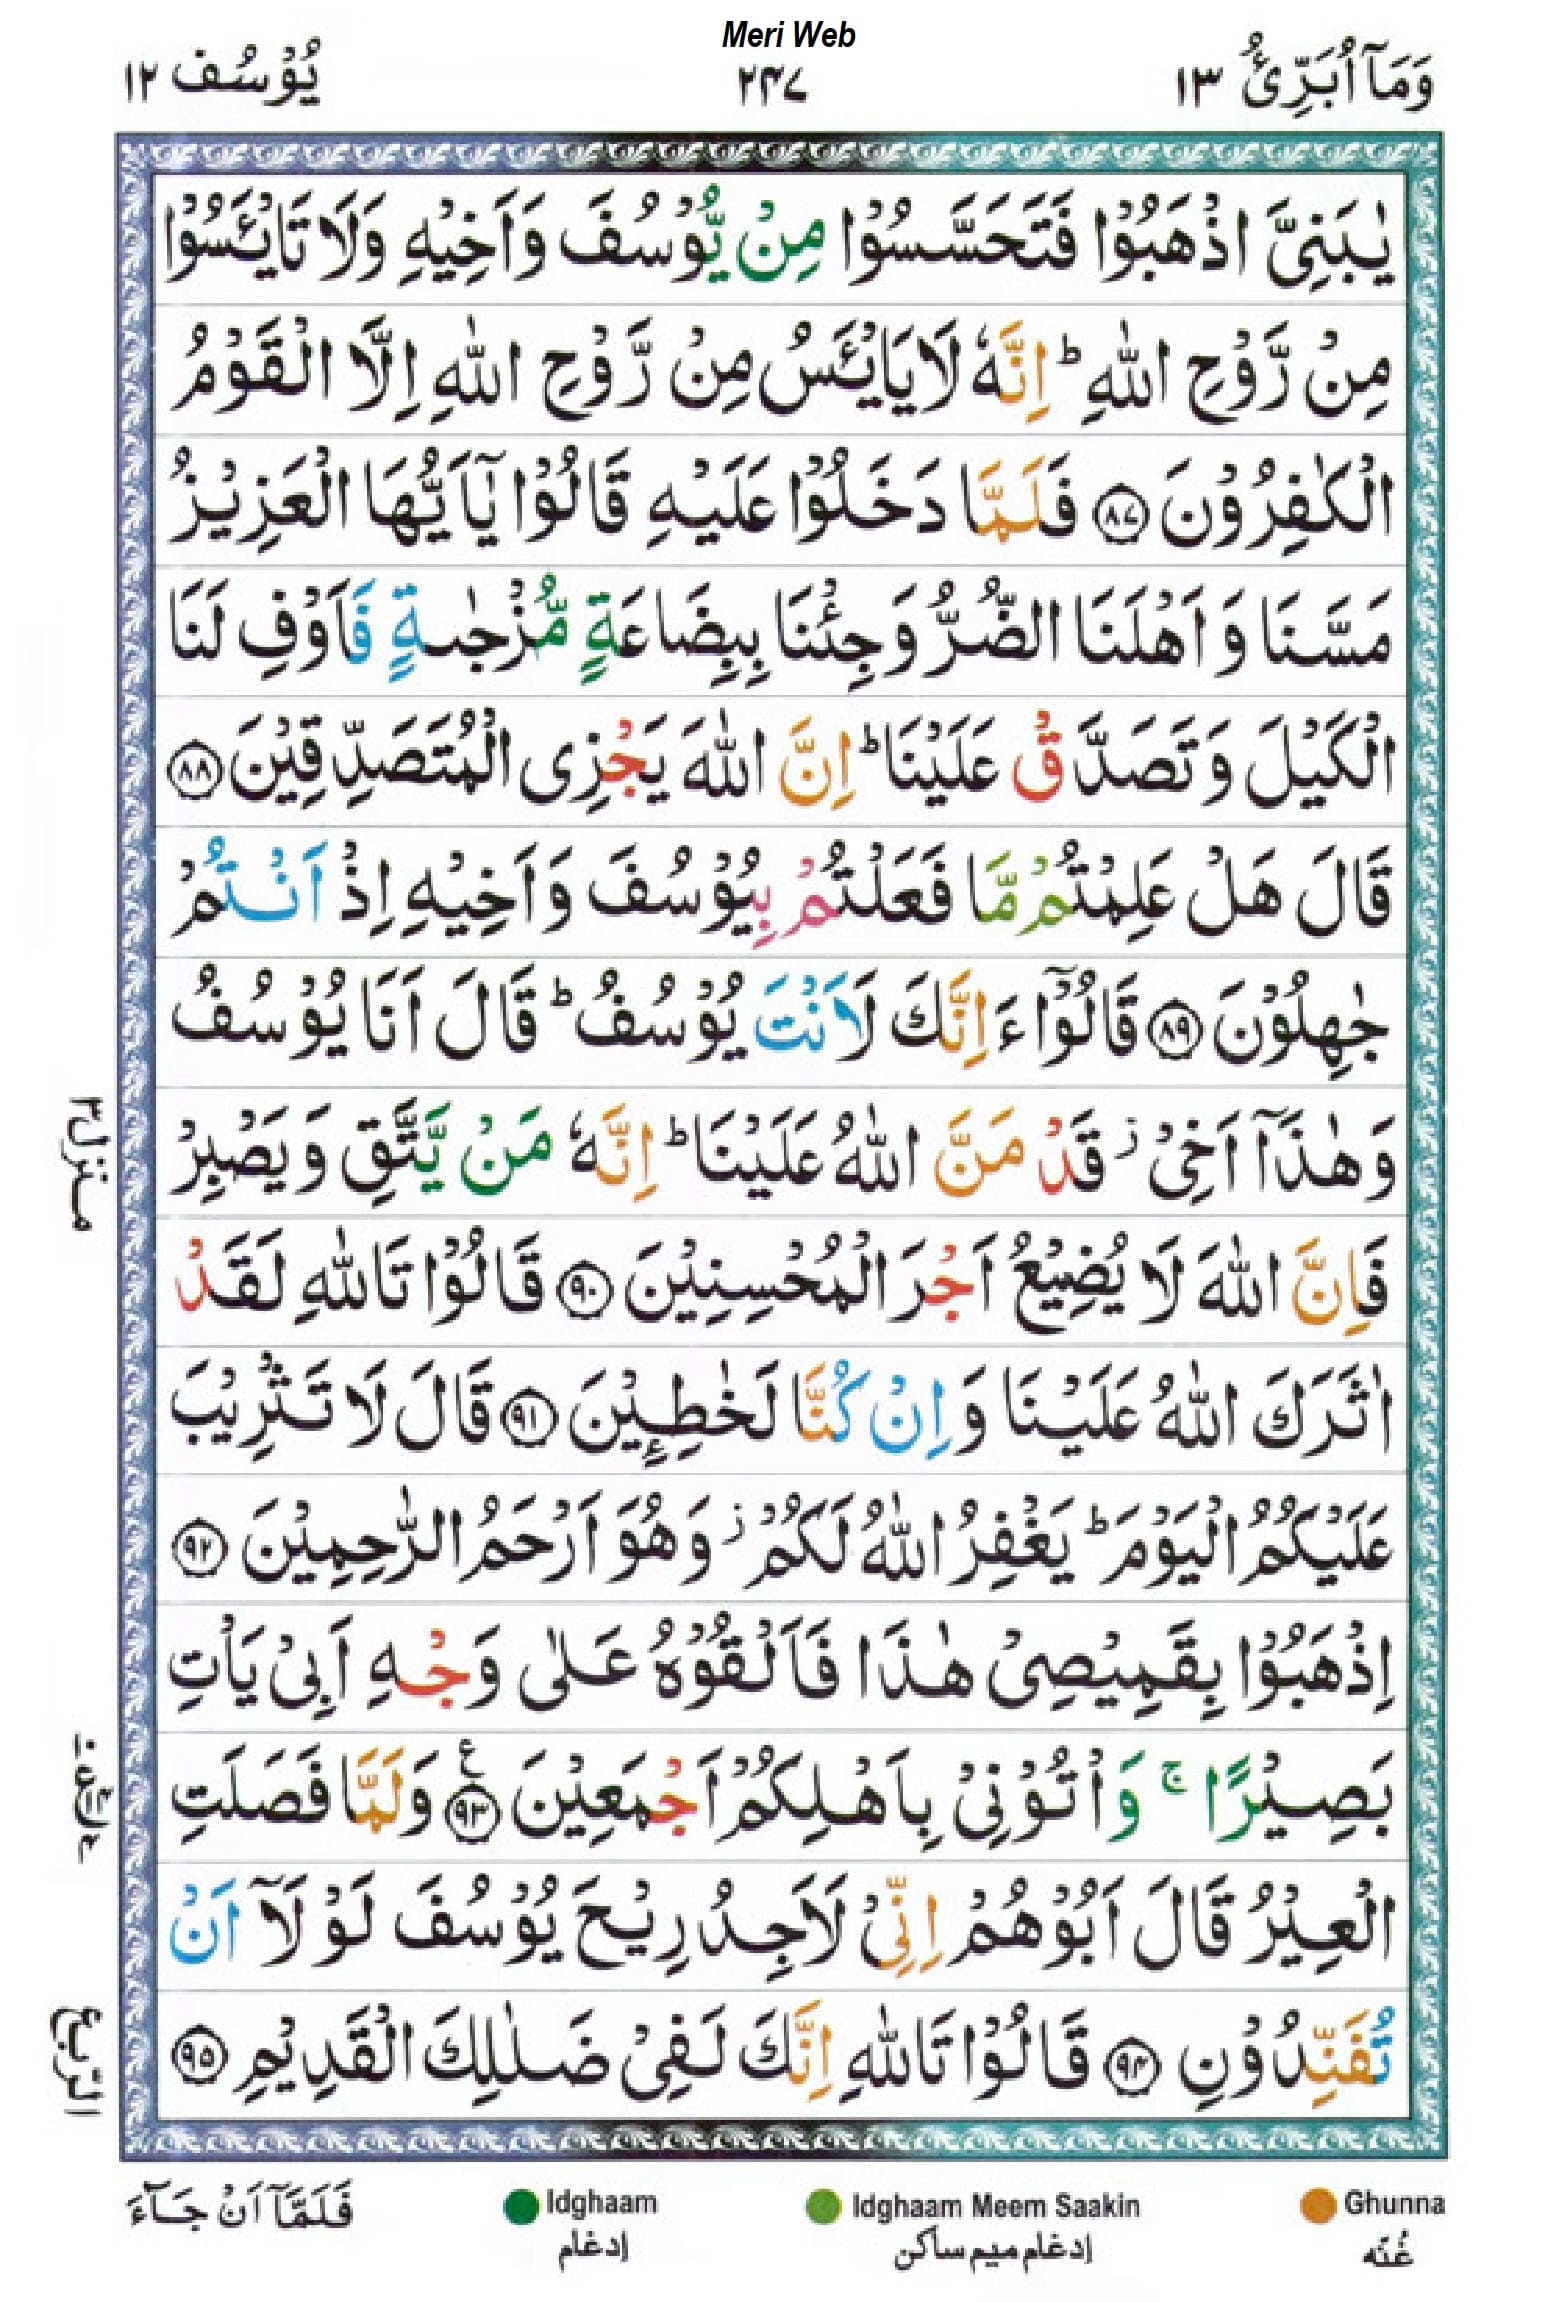 Meri Web
وَمَآ اُبَرِّئُ ١٣
٢٤٧
يُوْسُف ١٢
يٰبَنِيَّ اذْهَبُوْا فَتَحَسَّسُوْا مِنْ يُّوْسُفَ وَاَخِيْهِ وَلَا تَايْـَٔسُوْا
مِنْ رَّوْحِ اللّٰهِ ؕ اِنَّهٗ لَا يَايْـَٔسُ مِنْ رَّوْحِ اللّٰهِ اِلَّا الْقَوْمُ
الْكٰفِرُوْنَ ﴿٨٧﴾ فَلَمَّا دَخَلُوْا عَلَيْهِ قَالُوْا يٰٓاَيُّهَا الْعَزِيْزُ
مَسَّنَا وَ اَهْلَنَا الضُّرُّ وَ جِئْنَا بِبِضَاعَةٍ مُّزْجٰىةٍ فَاَوْفِ لَنَا
الْكَيْلَ وَ تَصَدَّقْ عَلَيْنَا ؕ اِنَّ اللّٰهَ يَجْزِى الْمُتَصَدِّقِيْنَ ﴿٨٨﴾
قَالَ هَلْ عَلِمْتُمْ مَّا فَعَلْتُمْ بِيُوْسُفَ وَ اَخِيْهِ اِذْ اَنْتُمْ
جٰهِلُوْنَ ﴿٨٩﴾ قَالُوْٓا ءَاِنَّكَ لَاَنْتَ يُوْسُفُ ؕ قَالَ اَنَا يُوْسُفُ
وَ هٰذَآ اَخِيْ ز قَدْ مَنَّ اللّٰهُ عَلَيْنَا ؕ اِنَّهٗ مَنْ يَّتَّقِ وَ يَصْبِرْ
فَاِنَّ اللّٰهَ لَا يُضِيْعُ اَجْرَ الْمُحْسِنِيْنَ ﴿٩٠﴾ قَالُوْا تَاللّٰهِ لَقَدْ
اٰثَرَكَ اللّٰهُ عَلَيْنَا وَ اِنْ كُنَّا لَخٰطِـِٕيْنَ ﴿٩١﴾ قَالَ لَا تَثْرِيْبَ
عَلَيْكُمُ الْيَوْمَ ؕ يَغْفِرُ اللّٰهُ لَكُمْ ز وَ هُوَ اَرْحَمُ الرّٰحِمِيْنَ ﴿٩٢﴾
اِذْهَبُوْا بِقَمِيْصِيْ هٰذَا فَاَلْقُوْهُ عَلٰى وَجْهِ اَبِيْ يَاْتِ
بَصِيْرًا ۚ وَ اْتُوْنِيْ بِاَهْلِكُمْ اَجْمَعِيْنَ ﴿٩٣﴾ ع وَ لَمَّا فَصَلَتِ
الْعِيْرُ قَالَ اَبُوْهُمْ اِنِّيْ لَاَجِدُ رِيْحَ يُوْسُفَ لَوْ لَآ اَنْ
تُفَنِّدُوْنِ ﴿٩٤﴾ قَالُوْا تَاللّٰهِ اِنَّكَ لَفِيْ ضَلٰلِكَ الْقَدِيْمِ ﴿٩٥﴾
منزل ٣
الرّبع
فَلَمَّآ اَنْ جَآءَ
Idghaam
إدغام
Idghaam Meem Saakin
إدغام ميم ساكن
Ghunna
غُنّه